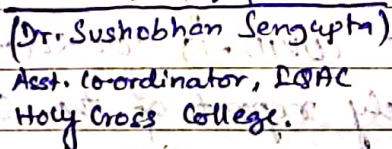 (Dr. Sushobhan Sengupta)
Asst. Co-ordinator, IQAC
Holy Cross College.